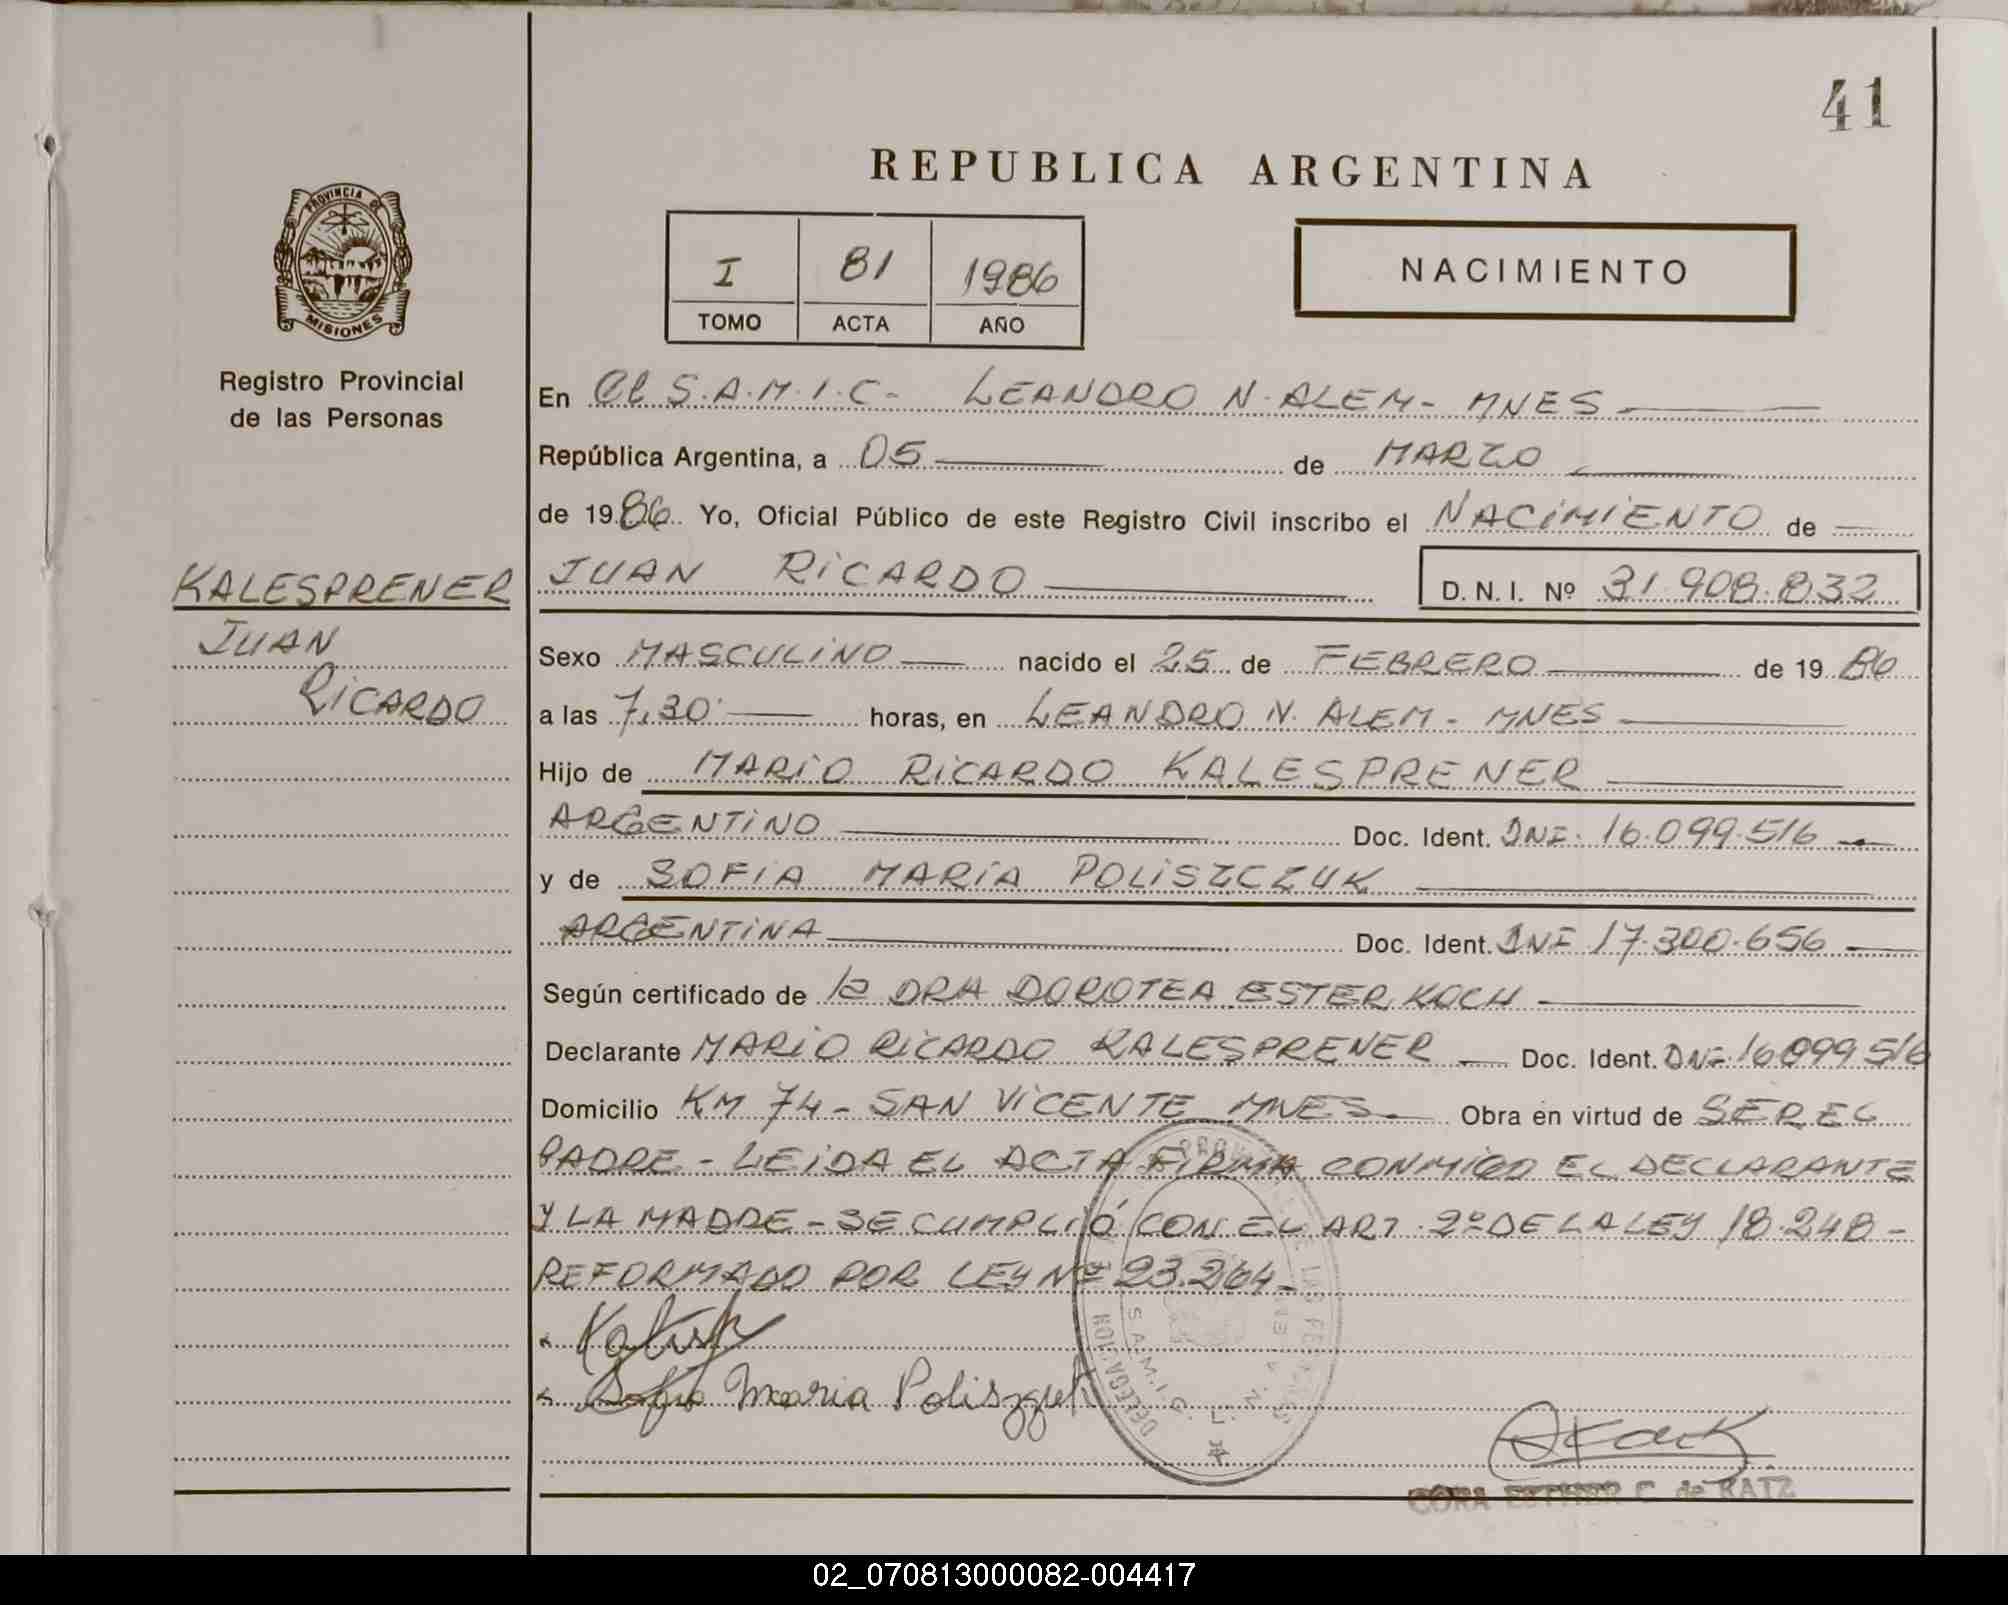 41
REPUBLICA ARGENTINA
PROVINCIA DE
MISIONES
Registro Provincial
de las Personas
I 81 1986
TOMO ACTA AÑO
NACIMIENTO
En el S.A.M.I.C- LEANDRO N. ALEM- MNES
República Argentina, a 05 de MARZO
de 1986 Yo, Oficial Público de este Registro Civil inscribo el NACIMIENTO de
KALESPRENER
JUAN
RICARDO
JUAN RICARDO D.N.I. Nº 31.908.832
Sexo MASCULINO nacido el 25 de FEBRERO de 1986
a las 7,30 horas, en LEANDRO N. ALEM- MNES
Hijo de MARIO RICARDO KALESPRENER
ARGENTINO Doc. Ident. DNI. 16.099.516
y de SOFIA MARIA POLISZCZUK
ARGENTINA Doc. Ident. DNI 17.300.656
Según certificado de la DRA DOROTEA ESTER KOCH
Declarante MARIO RICARDO KALESPRENER Doc. Ident. DNI. 16099516
Domicilio KM 74- SAN VICENTE MNES- Obra en virtud de SER EL
PADRE - LEIDA EL ACTA FIRMA CONMIGO EL DECLARANTE
Y LA MADRE - SE CUMPLIÓ CON EL ART. 2º DE LA LEY 18.248-
REFORMADO POR LEY Nº 23.264-
Sofia Maria Poliszczuk
DELEGACION
S.A.M.I.C. L. N. A.
CORA ESTHER C. de RATZ
02_070813000082-004417